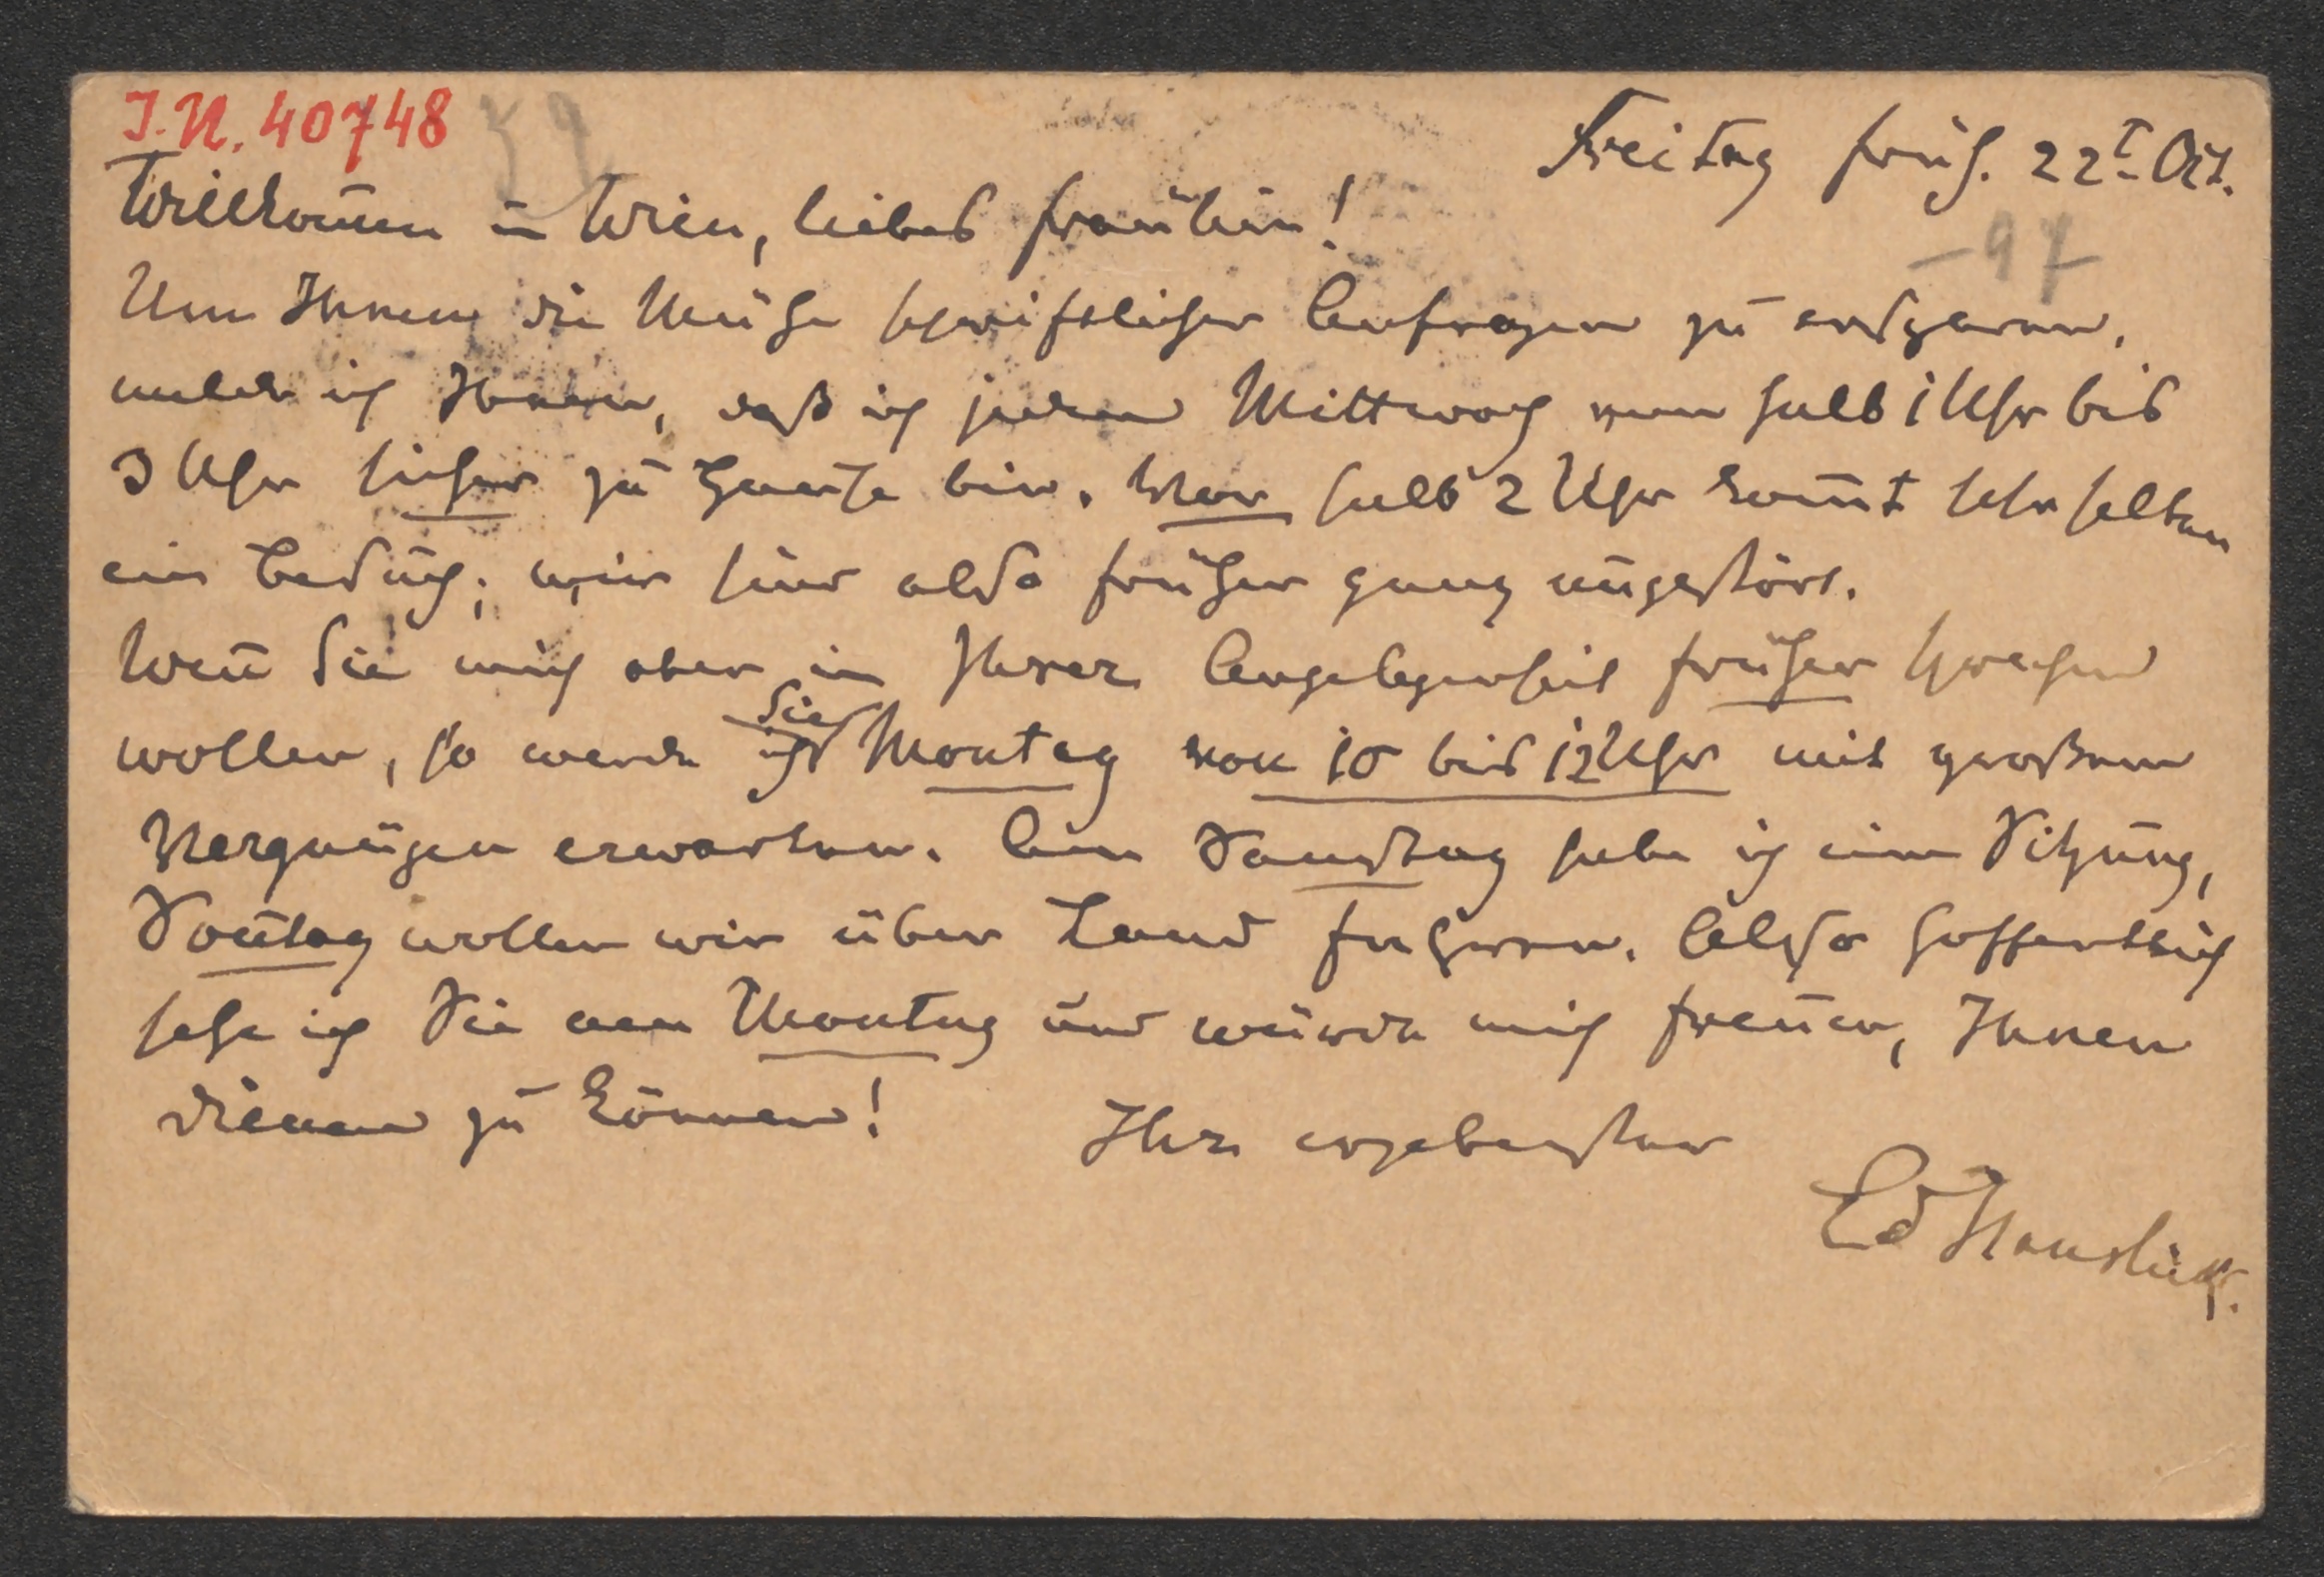 I.N. 40748
Freitag früh. 22t Okt.
Willkom̅en in Wien, liebes Fräulein!
– 97
Um Ihnen die Mühe schriftlicher Anfragen zu ersparen,
melde ich Ihnen, daß ich jeden Mittwoch von halb 1 Uhr bis
3 Uhr sicher zu Hause bin. Vor halb 2 Uhr kom̅t sehr selten
ein Besuch; wir sind also früher ganz ungestört.
Wen̅ Sie mich aber in Ihrer Angelegenheit früher sprechen
wollen, so werde ich Sie Montag von 10 bis 12 Uhr mit großem
Vergnügen erwarten. Am Samstag habe ich eine Sitzung,
Son̅tag wollen wir über Land fahren. Also hoffentlich
sehe ich Sie am Montag und würde mich freuen, Ihnen
dienen zu können!
Ihr ergebenster
Ed Hanslick.